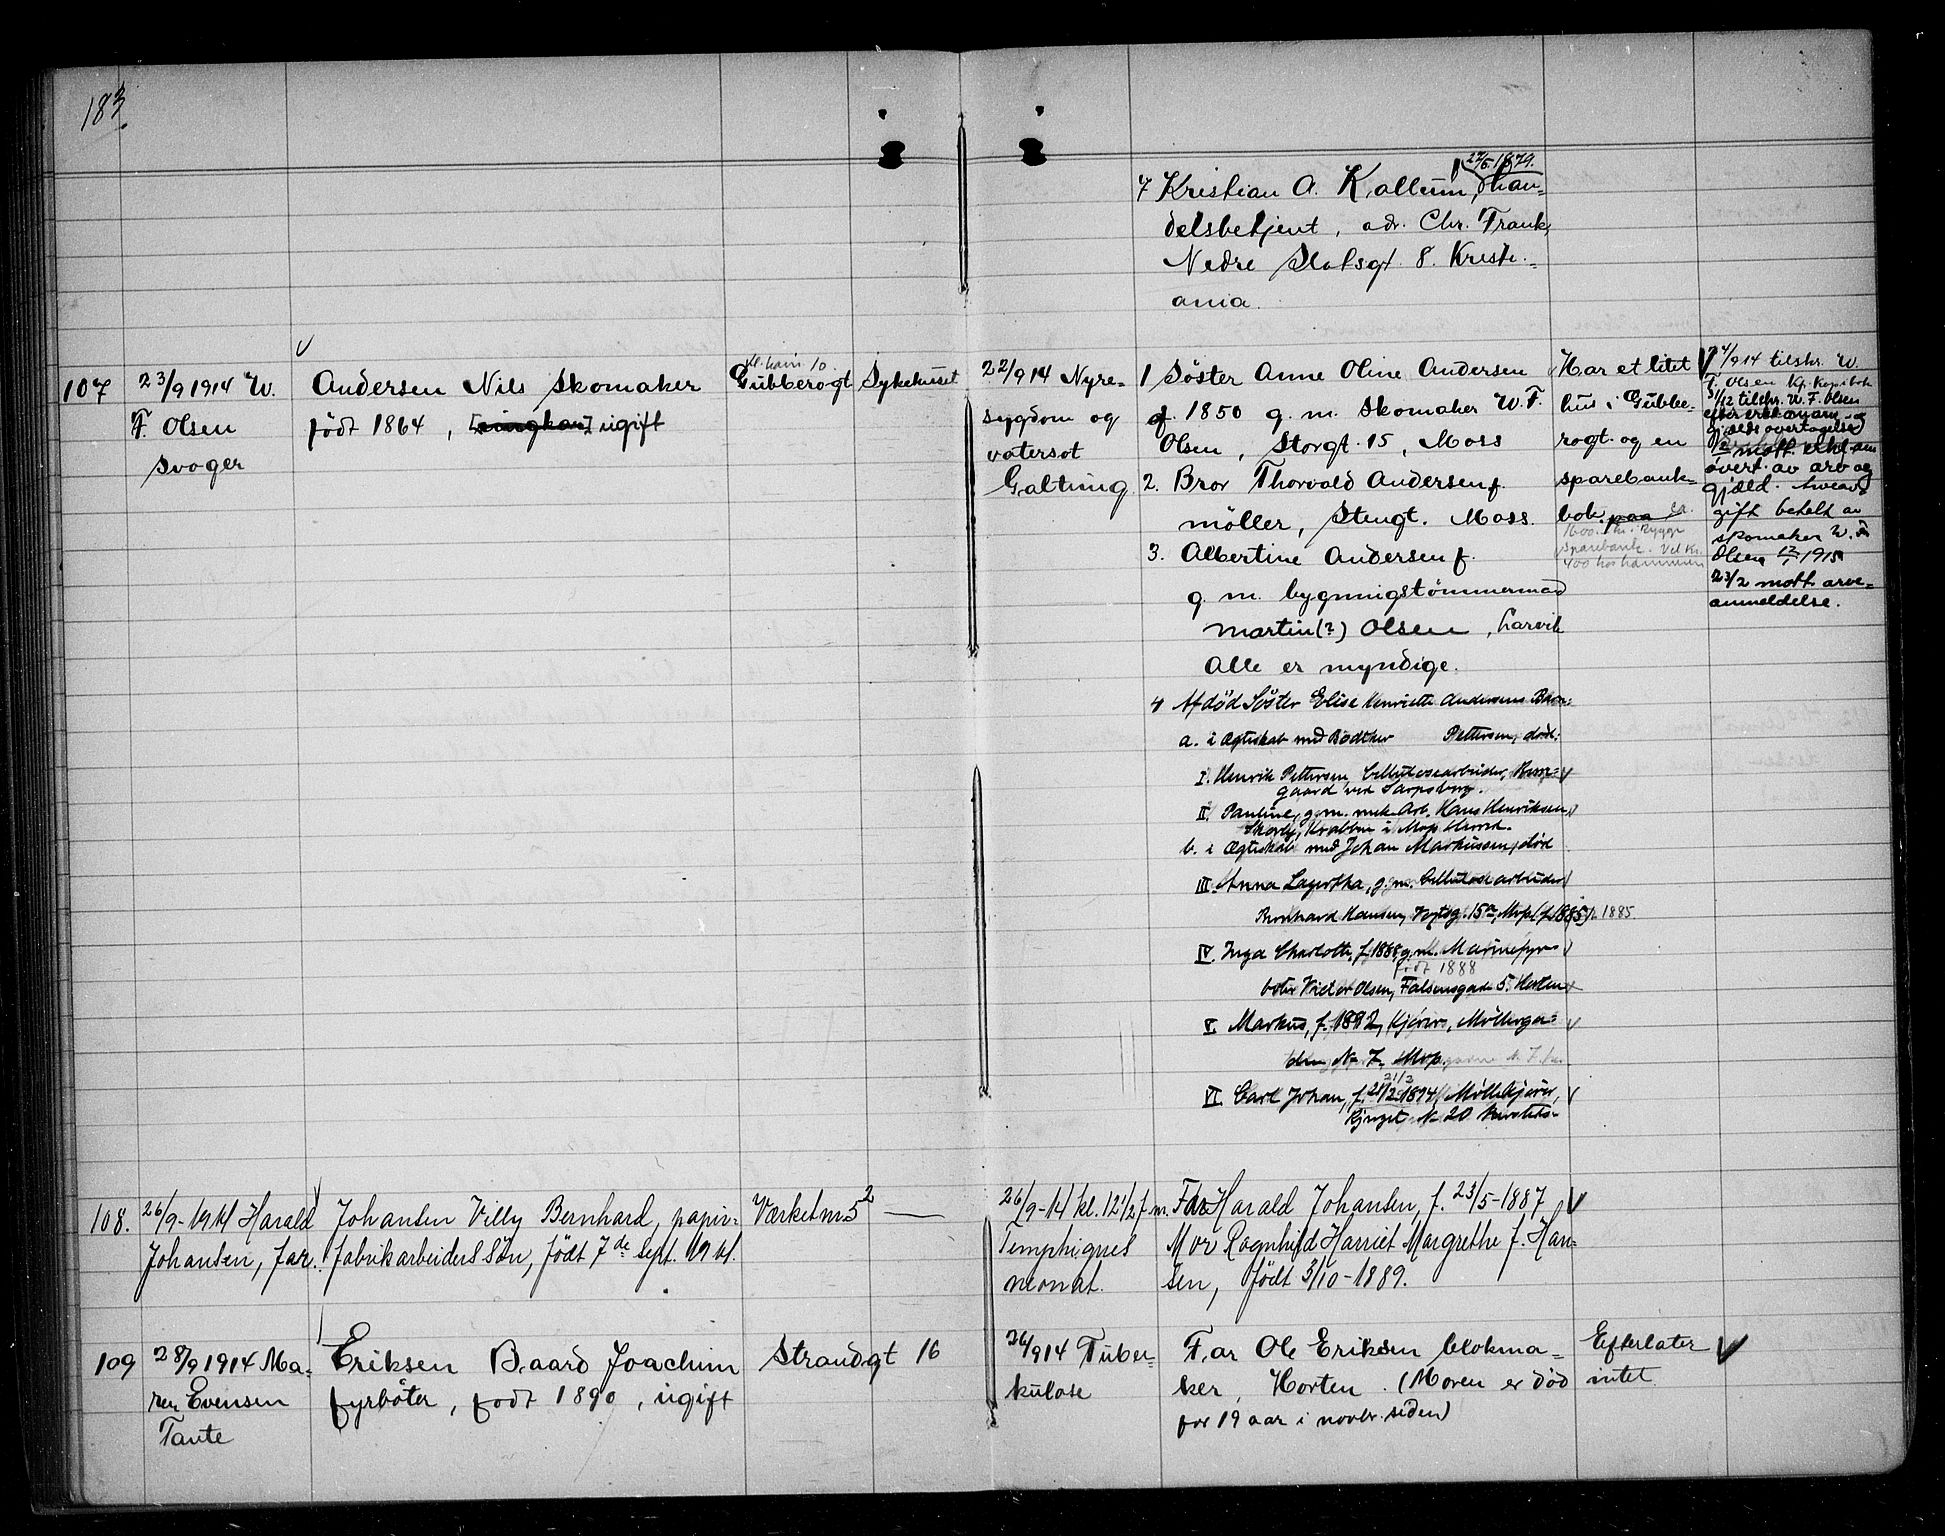 183.
27/5 1879.
7 Kristian A. Kallum, han-
delsbetjent, adr. Chr. Frank,
Nedre Slotsgt. 8. Kristi-
ania.
107
23/9 1914 W.
F. Olsen
Svoger
Andersen Nils Skomaker
født 1864, ugift
10
Gubberogt
Sykehuset
22/9 14 Nyre-
sygdom og
vatersot
Galtung
1 Søster Anne Oline Andersen
f. 1850 g. m. Skomaker W. F.
Olsen, Storgt. 15, Moss
2. Bror Thorvald Andersen f.
möller, Stengt. Moss.
3. Albertine Andersen f.
g. m. bygningstömmermand
Martin (?) Olsen, Larvik
Alle er myndige.
4 Afdød Søster Elise Henriette Andersens Børn:
a. i Ægteskab med Bødtker Pettersen, død:
I. Henrik Pettersen, Cellulosearbeider,
gaard ved Sarpsborg.
II. Pauline, g. m. mek. Arb. Hans Henriksen,
Krabben i Moss
b. i Ægteskab med Johan Markussen, død
III. Anna Lagertha, g. m. Cellulosearbeider
Bernhard Hansen, 15, Moss (f. 1885) 1885
IV. Inga Charlotte, f. 1888, g. m. Marinefyr-
født 1888
bøter Victor Olsen, Falsensgade 5. Horten
V. Markus, f. 1892, Kjører, Møllerga-
den No 7, Moss.
21/2
VI. Carl Johan, f. 21/2 1874, Møllekjører,
No 20
Har et litet
hus i Gubbe-
rogt. og en
sparebank-
bok paa ca.
1600 kr. i Rygge
Sparebank. Vel kr.
400 hos
24/9 14 tilskr. W.
F. Olsen Kr. Kopibok
31/12 tilskr. W. F. Olsen
gjældsovertagelse
mott. erkl. om
overt. av arv og
gjæld.
gift betalt av
skomaker W. F.
Olsen 1915
23/2 mott. arve-
anmeldelse.
108.
26/9-1914 Harald
Johansen, far.
Johansen Villy Bernhard, papir-
fabrikarbeiders søn, født 7de sept. 1914.
Værket nr. 52
—
26/9-14 kl. 12 1/2 f.m.
Pemphigus
neonat.
Far Harald Johansen, f. 23/5-1887
Mor Ragnhild Harriet Margrethe f. Han-
sen, født 3/10-1889.
109
28/9 1914 Ma-
ren Evensen
Tante
Eriksen Baard Joachim
fyrbøter, født 1890, ugift
Strandgt 16
26/9 14 Tuber-
kulose
Far Ole Eriksen blokma-
ker, Horten. (Moren er død
for 19 aar i novbr. siden)
Efterlater
intet